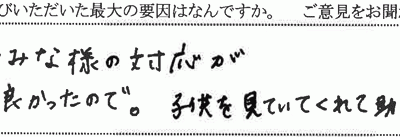 びいただいた最大の要因はなんですか。　ご意見をお聞
みな様の対応が
良かったので。 子供を見ていてくれて助